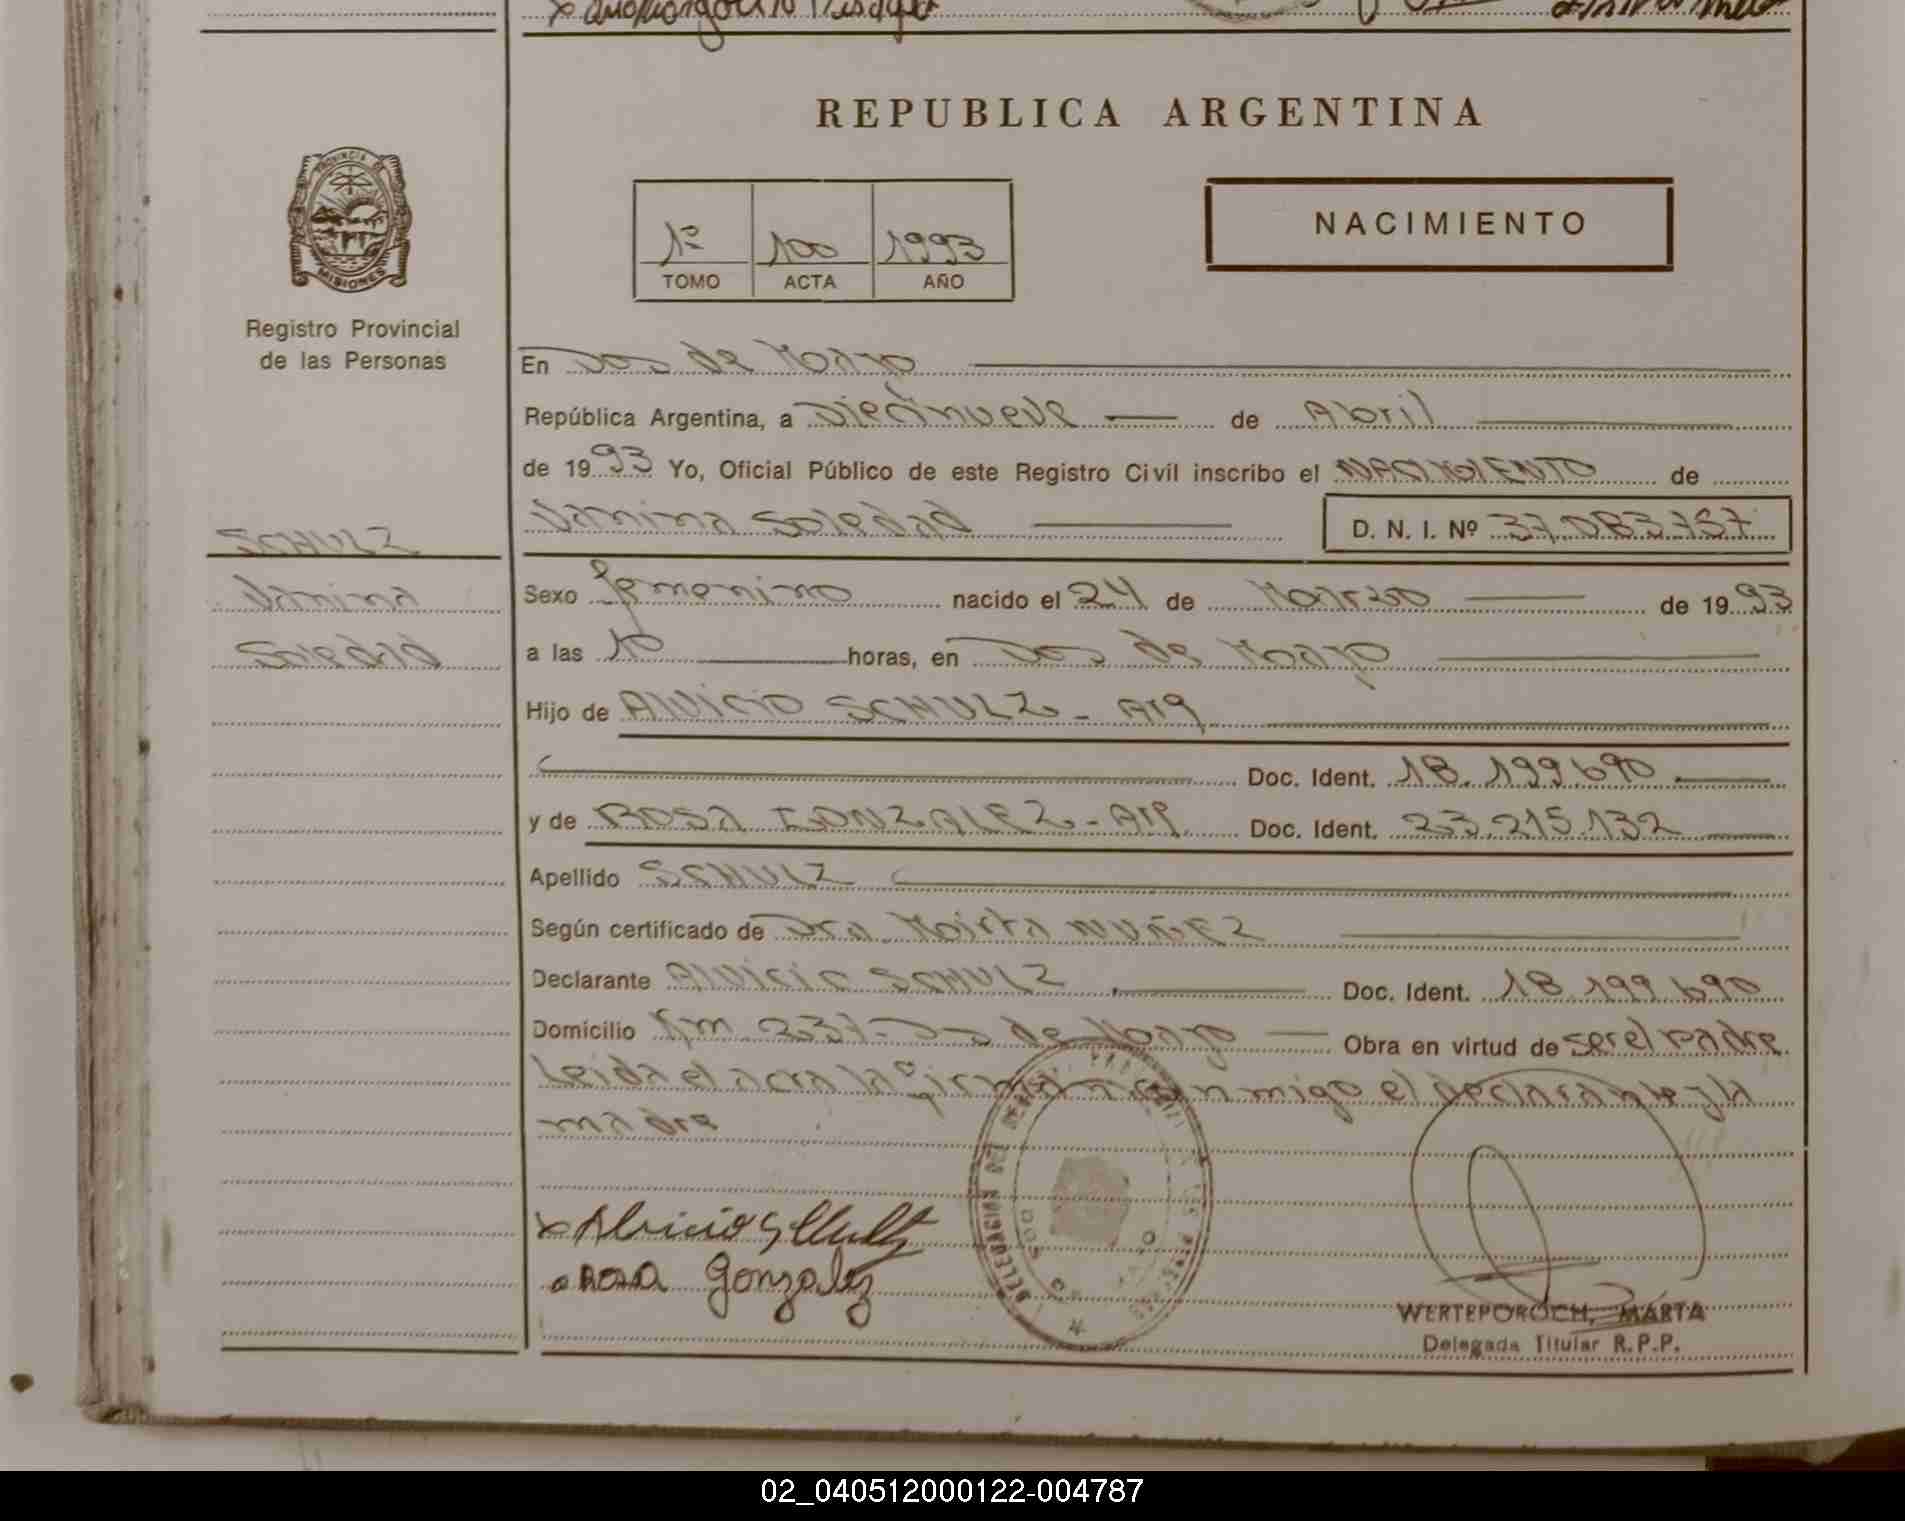 REPUBLICA ARGENTINA
PROVINCIA DE
MISIONES
Registro Provincial
de las Personas
1º 100 1993
TOMO ACTA AÑO
NACIMIENTO
En Dos de Mayo
República Argentina, a Diecinueve de Abril
de 1993 Yo, Oficial Público de este Registro Civil inscribo el NACIMIENTO de
Janina Soledad D. N. I. Nº 37.083.757
SCHULZ
Janina
Soledad
Sexo femenino nacido el 24 de Marzo de 1993
a las 10 horas, en Dos de Mayo
Hijo de Alvicio SCHULZ - Arg
Doc. Ident. 18.199.690
y de ROSA GONZALEZ - Arg. Doc. Ident. 23.215.132
Apellido SCHULZ
Según certificado de Dra. Mirta NUÑEZ
Declarante Alvicio SCHULZ Doc. Ident. 18.199.690
Domicilio Km. 237 - Dos de Mayo Obra en virtud de ser el padre
Leida el acta la firman conmigo el declarante y la
madre
x Alvicio Schulz
Rosa Gonzalez
WERTEPOROCH, MARTA
Delegada Titular R.P.P.
02_040512000122-004787